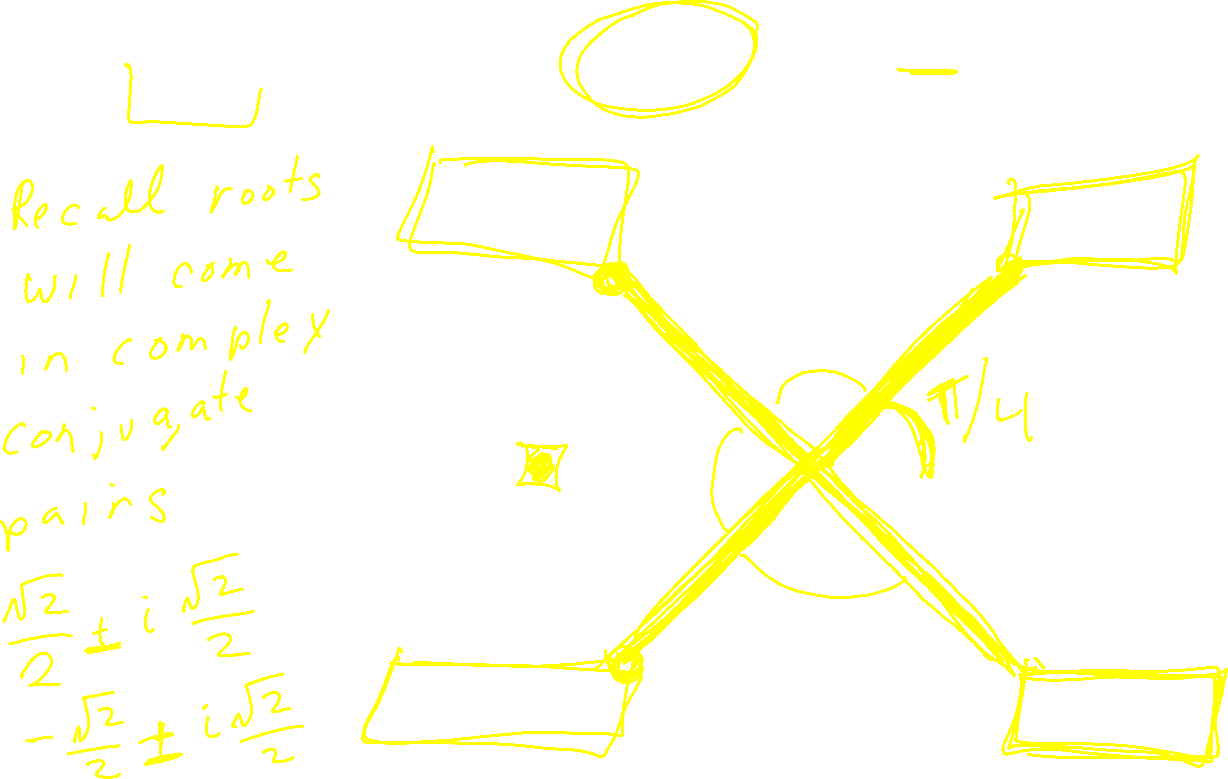 Recall roots
will come
in complex
conjugate
pairs
√2/2 ± i √2/2
-√2/2 ± i √2/2
π/4